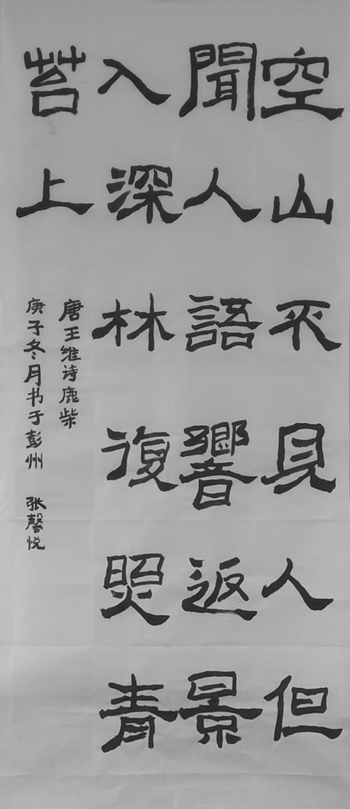 空山不見人但
聞人語響返景
入深林復照青
苔上
唐王维诗鹿柴
庚子冬月书于彭州 张馨悦